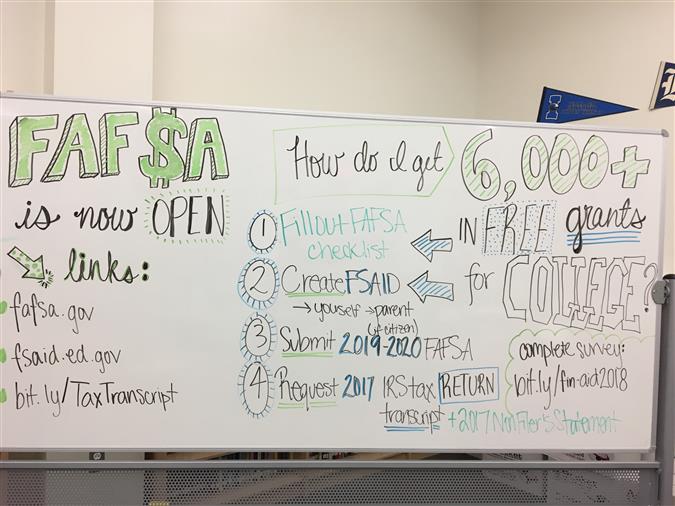 FAF$A
is now OPEN
links:
fafsa.gov
fsaid.ed.gov
bit.ly/TaxTranscript
How do I get
6,000+
IN FREE grants
for COLLEGE?
1 Fill out FAFSA
checklist
2 Create FSAID
→ youself → parent
(if citizen)
3 Submit 2019-2020 FAFSA
4 Request 2017 IRS tax RETURN
transcript
+2017 Non Filer's Statement
complete survey:
bit.ly/fin-aid2018